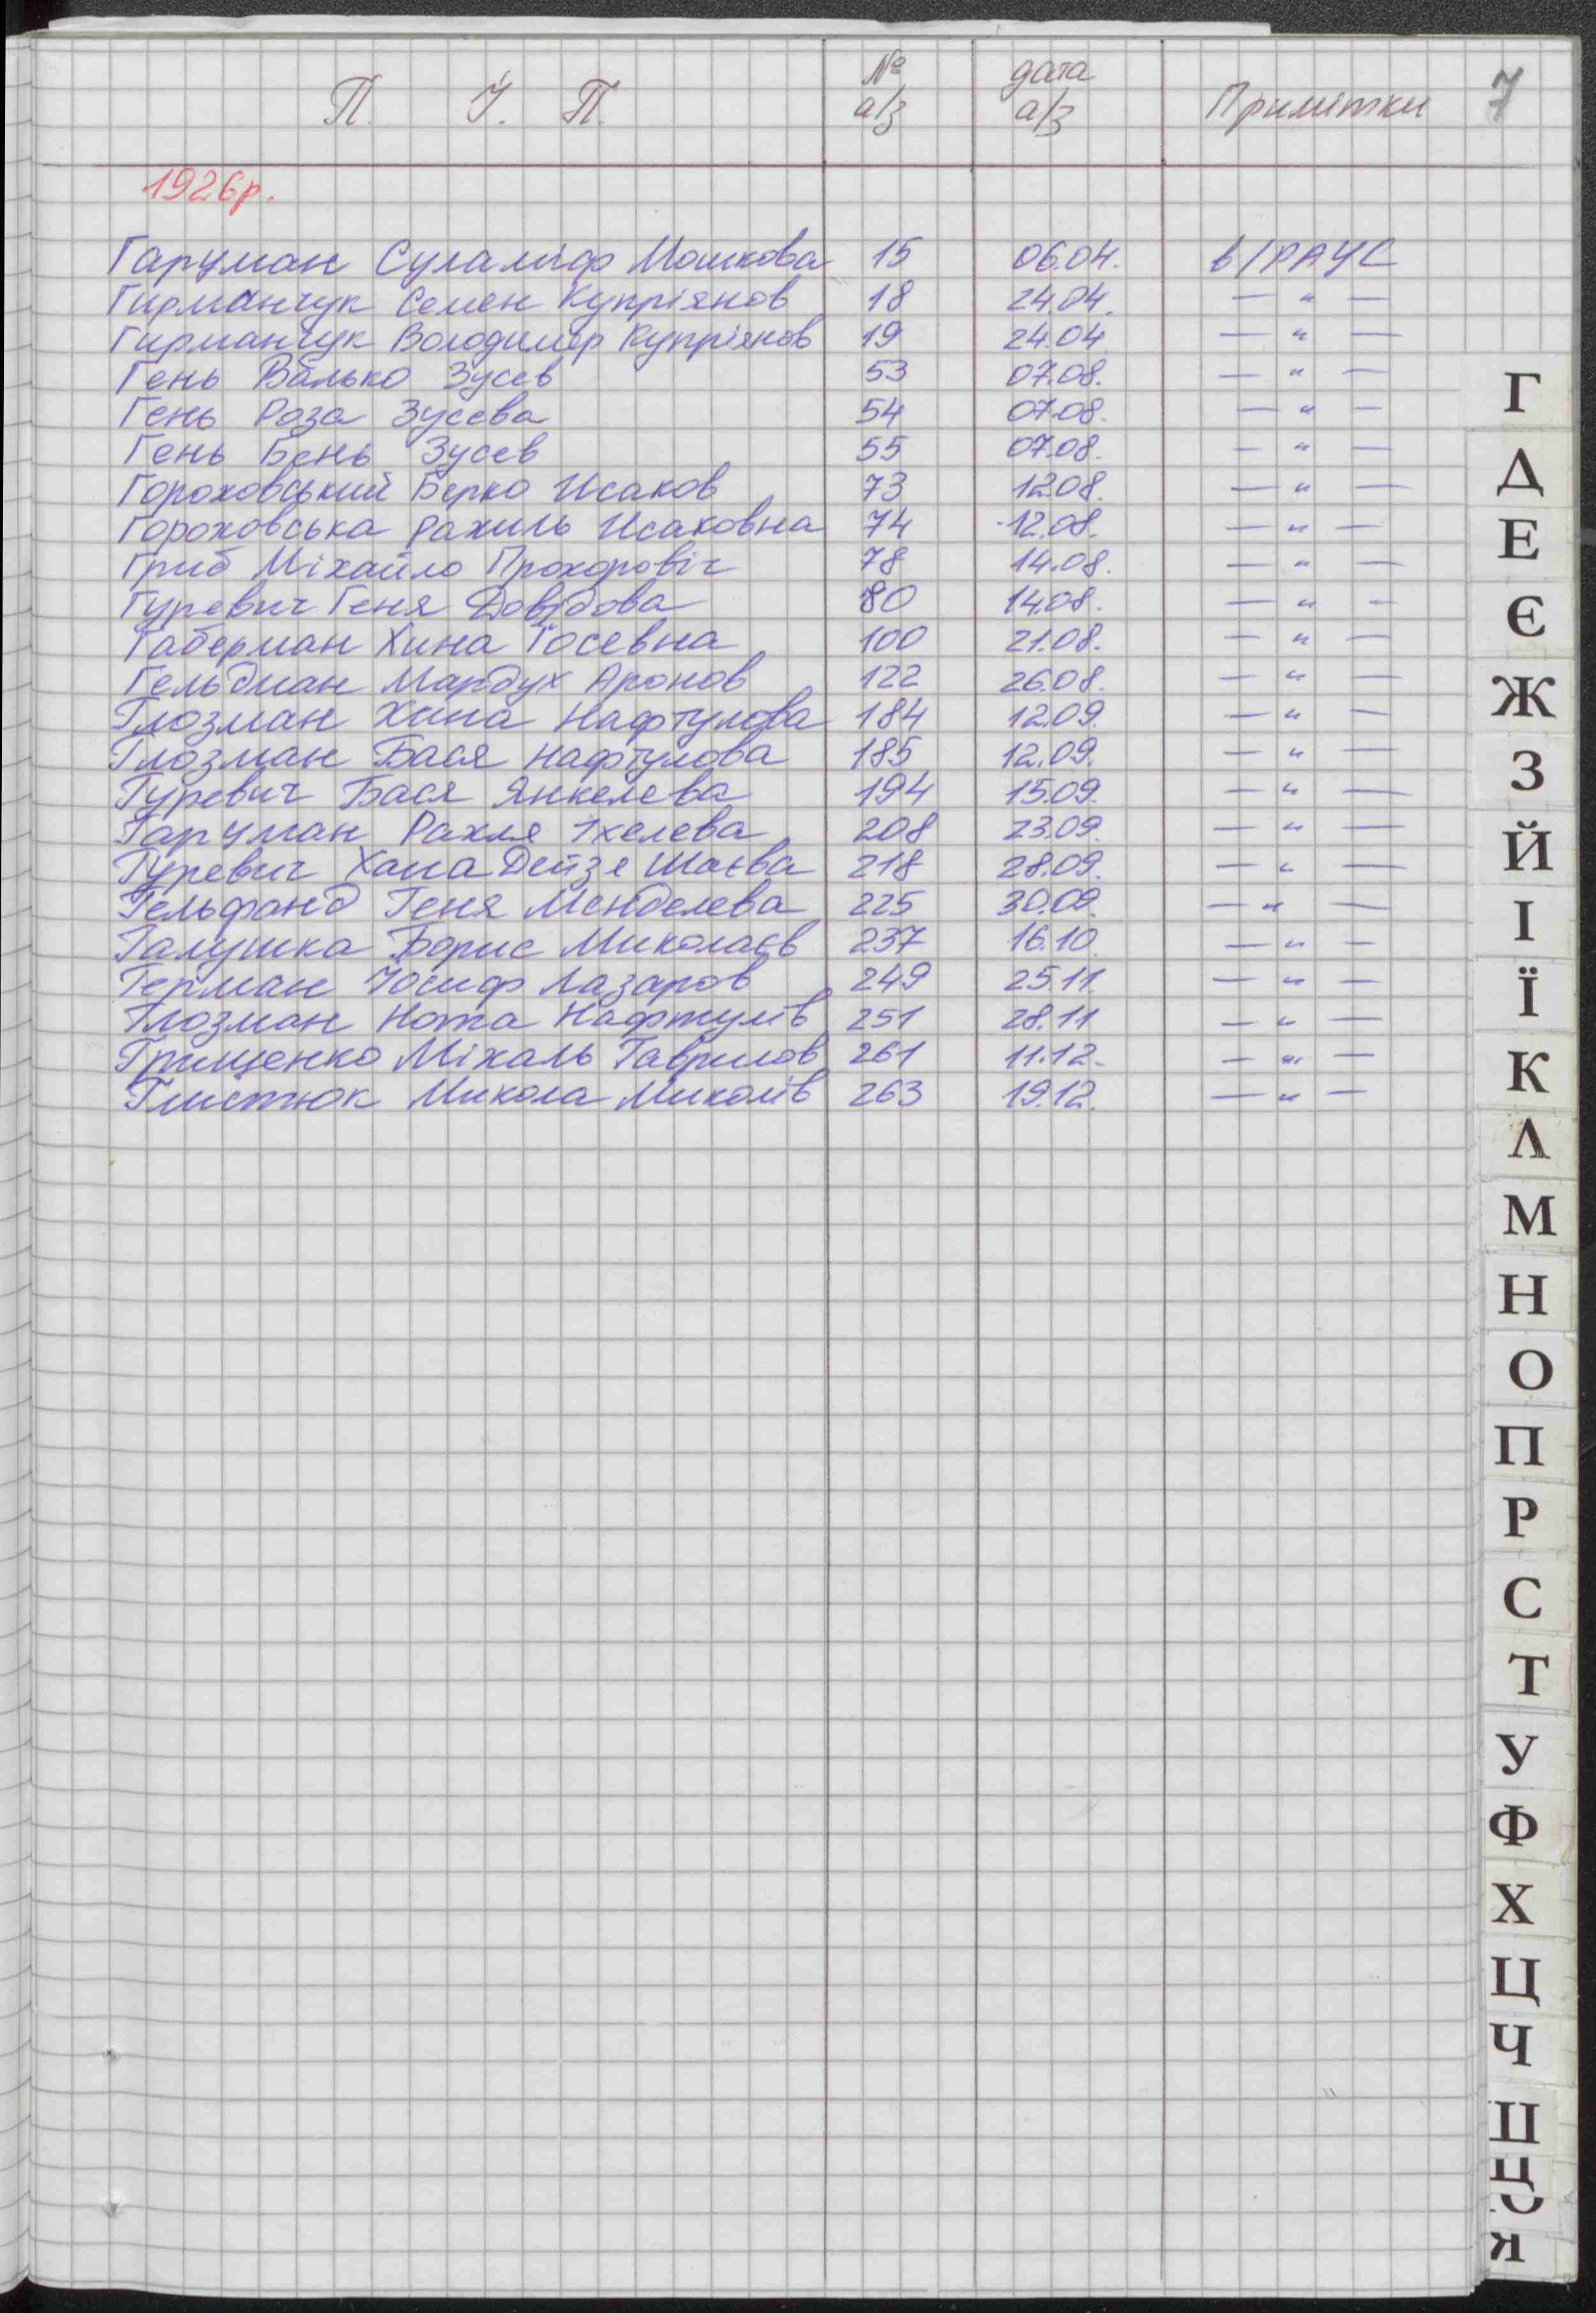 П. І. П. № а/з дата а/з Примітки 7
1926р.
Гарцман Суламіф Мошкова 15 06.04. в/РАЦС
Гирманчук Семен Купріянов 18 24.04. — " —
Гирманчук Володимір Купріянов 19 24.04 — " —
Гень Валько Зусев 53 07.08. — " —
Гень Роза Зусева 54 07.08. — " —
Гень Бень Зусев 55 07.08. — " —
Гороховський Берко Исаков 73 12.08. — " —
Гороховська Рахиль Исаковна 74 12.08. — " —
Гриб Міхайло Прохоровіч 78 14.08. — " —
Гуревич Геня Довідова 80 14.08. — " —
Габерман Хина Іосевна 100 21.08. — " —
Гельдман Мардух Аронов 122 26.08. — " —
Глозман Хина Нафтулова 184 12.09. — " —
Глозман Бася Нафтулова 185 12.09. — " —
Гуревич Бася Янкелева 194 15.09. — " —
Гарцман Рахля Іхелева 208 23.09. — " —
Гуревич Хана Дейзе Шаєва 218 28.09. — " —
Гельфанд Геня Менделева 225 30.09. — " —
Галушка Борис Миколаєв 237 16.10. — " —
Герман Йосиф Лазаров 249 25.11. — " —
Глозман Нота Нафтулів 251 28.11 — " —
Грищенко Міхаль Гаврилов 261 11.12. — " —
Глистюк Микола Миколів 263 19.12. — " —
Г
Д
Е
Є
Ж
З
Й
І
Ї
К
Л
М
Н
О
П
Р
С
Т
У
Ф
Х
Ц
Ч
Я